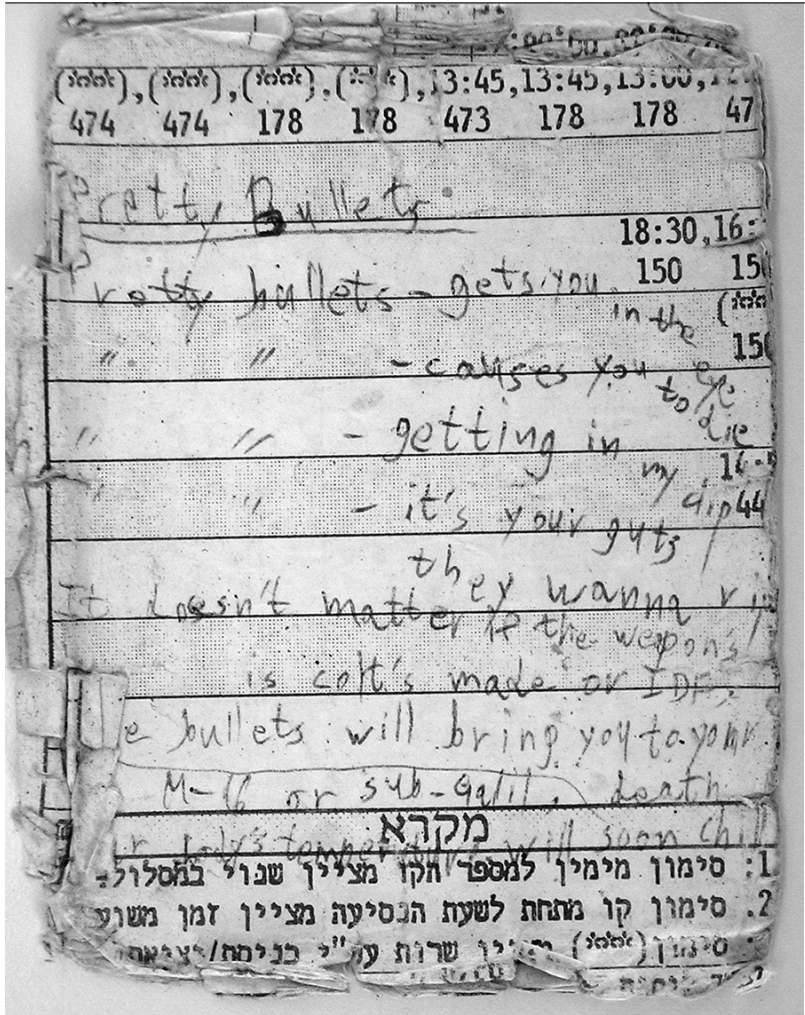 (***), (***), (***), (***), 13:45, 13:45, 13:00,
474 474 178 178 473 178 178 47
Pretty Bullets
18:30, 16:
150 15
Pretty bullets - gets you in the eye
" " - causes you to die
150
" " - getting in my clip
" " - it's your guts
44
they wanna rip
It doesn't matter if the weapon's
is colt's made or IDF,
e bullets will bring you to your
death
M-16 or sub-Galil,
מקרא
body's temperature will soon chill
1: סימון מימין למספר הקו מציין שנוי במסלול.
2. סימון קו מתחת לשעת הנסיעה מציין זמן משוע
סימון (***) מציין שרות ע"י כניסה/יציאה